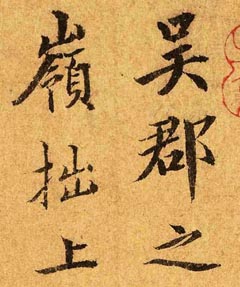 吴郡之
嶺拙上